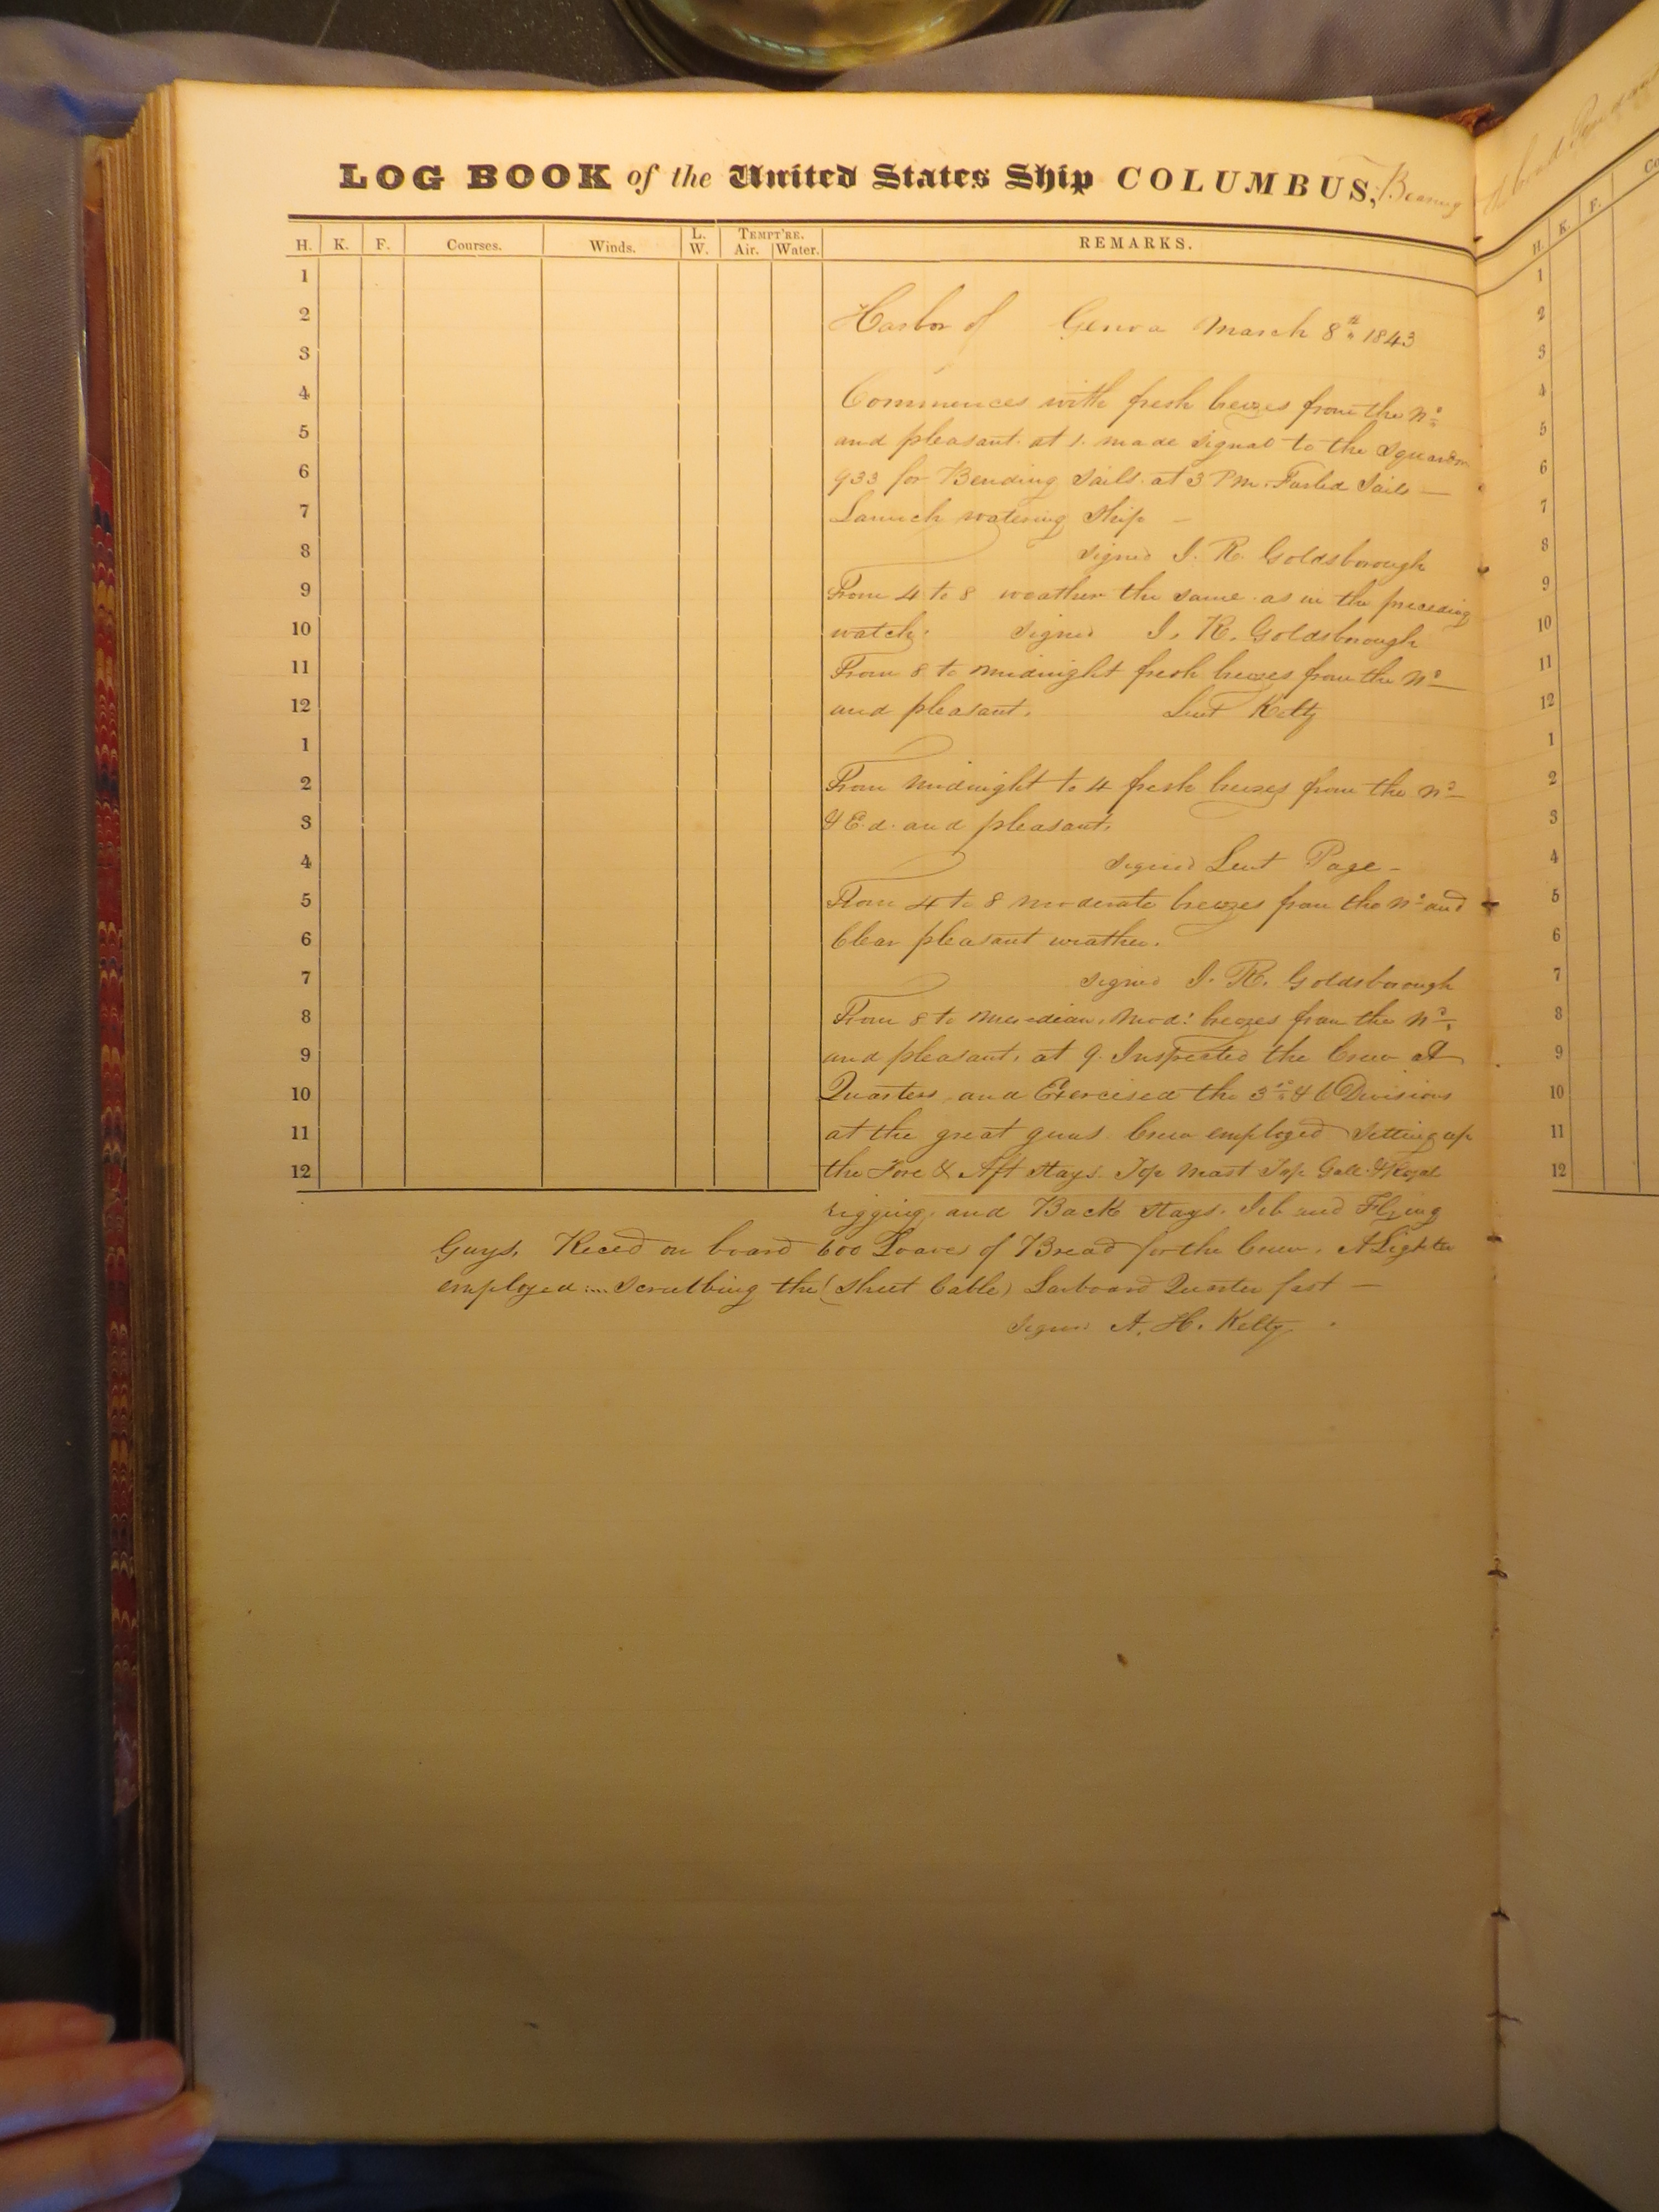 LOG BOOK of the United States Ship COLUMBUS, Bearing
H. K. F. Courses. Winds. L. W. TEMPT'RE. Air. Water. REMARKS.
1
2 Harbor of Genoa March 8th 1843
3
4 Commences with fresh breezes from the No
5 and pleasant. at 1. made signal to the Squadron
6 933 for Bending Sails. at 3 P.M. Furled Sails —
7 Launch watering Ship —
8 signed J. R. Goldsborough
9 From 4 to 8 weather the same as in the preceding
10 watch. signed J. R. Goldsborough
11 From 8 to midnight fresh breezes from the No
12 and pleasant. Lieut Kelty
1
2 From Midnight to 4 fresh breezes from the No
3 & E.d. and pleasant.
4 signed Lieut Page -
5 From 4 to 8 moderate breezes from the No and
6 Clear pleasant weather.
7 signed J. R. Goldsborough
8 From 8 to Meredian, Mod: breezes from the No.
9 and pleasant. at 9. Inspected the Crew at
10 Quarters, and Exercised the 3rd & 6 Divisions
11 at the great guns. Crew employed Setting up
12 the Fore & Aft Stays. Top Mast Top Gall. & Royal
rigging, and Back Stays. Jib and Flying
Guys. Reced on board 600 Loaves of Bread for the Crew. A Lighter
employed .... scrubbing the (Sheet Cable) Larboard Quarter fast —
signed A. H. Kelty.
H. K. F.
1
2
3
4
5
6
7
8
9
10
11
12
1
2
3
4
5
6
7
8
9
10
11
12